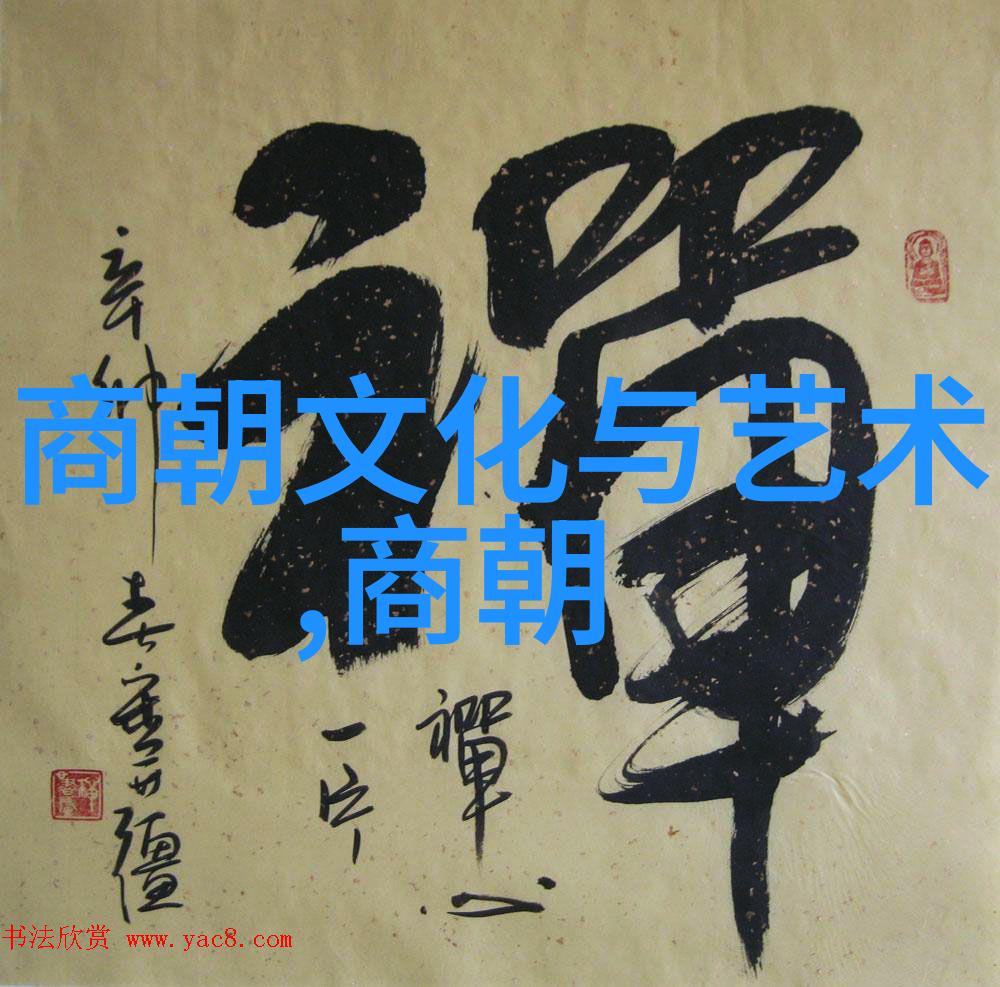 商朝文化与艺术
,商朝
禪
禪心
一片
辛卯
春
书法欣赏 www.yac8.com